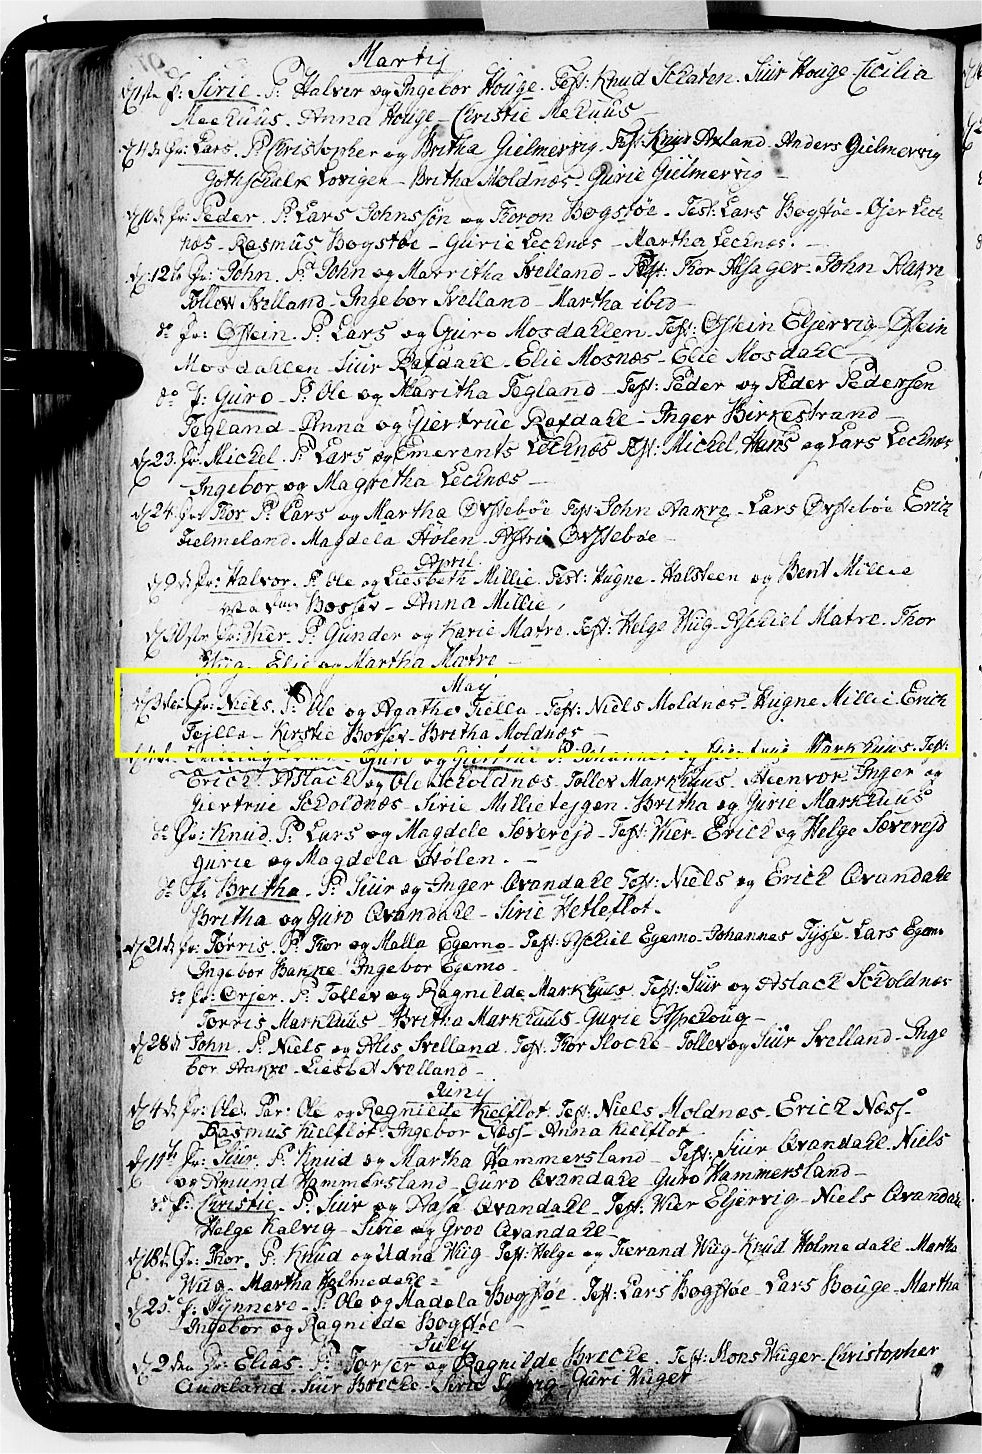 Martij
d. 1ste P: Sirie. P: Halver og Ingebor Houge. Test: Knud Schaten. Siur Houge. Cicilia
Mechuus. Anna Houge - Christie Mechuus
d. 4de Lars. P: Christopher og Britha Gielmervig. Test: Axland. Anders Gielmervig
Gothschalk - Britha Moldnæs - Gurie Gielmervig -
Peder. P: Lars Johnssøn og Thoron Bogstøe - Test: Lars Bogstøe -
næs - Rasmus Bogstøe - Gurie Lechnæs - Martha Lechnæs. -
d. 12te John. P: John og Marritha Svelland - Test: Thor - John Aakre
Tollow Svelland - Ingebor Svelland - Martha ibid -
do Østein. P: Lars og Guro Mosdahlen - Test: Østein Eljervig - Østein
Mosdahlen - Siur Rafdahl - Elie Mosnæs - Elie Mosdahl -
do P: Guro - P: Ole og Maritha Tegland - Test: Peder og Peder Pedersøn
Tegland - Anna og Giertrue Rafdahl - Inger Birkestrand -
d. 23. Michel. P: Lars og Emerents Lechnæs Test: Michel, Hans og Lars Lechnæs
Ingebor og Magretha Lechnæs -
d. 24. Thor P: Lars og Martha Øvstebøe Test: John Aakre - Lars Øvstebøe Erich
Tielmeland. Magdela Hølen - Astri Øvstebøe -
April
d. 9de Halvor. P: Ole og Liesbeth Millie. Test: Hugne - Halsteen og Bent Millie
Bossev - Anna Millie,
P: Gunder og Karie Matre. Test: Helge Wiig - Aschiel Matre. Thor
Elie og Martha Matre -
May
Niels. P: Ole og Agathe Fiella - Test: Niels Moldnæs - Hugne Millie. Erich
Fejlla - Kirstie Bossev - Britha Moldnæs -
Guro og P: Johannes og Markhuus. Test:
Erich Aslach og Ole Scholdnæs - Tollev Markhuus. Inger og
Giertrue Scholdnæs - Sirie - Britha og Gurie Markhuus
do Knud. P: Lars og Magdele Sæverejd - Test: Wier. Erich og Helge Sævereid
Gurie og Magdela Hølen. -
do P: Britha - P: Siur og Inger Qvandahl Test: Niels og Erich Qvandahl
Britha og Guro Qvandahl - Sirie Hetleflot.
d. 21de Tørris. P: Thor og Malla Egemo - Test: Aschiel Egemo - Johannes Tysse - Lars Egem
Ingebor - Ingebor Egemo -
do Ørjer. P: Tollev og Ragnilde Markhuus. Test: Siur og Aslach Scholdnæs
Tørris Markhuus - Britha Markhuus - Gurie
d. 28de John. P: Niels og Alis Svelland. Test: Thor - Tollev og Siur Svelland - Inge
bor - Liesbet Svelland -
Junij
d. 4de Ole. Par: Ole og Ragnilde Kielflot. Test: Niels Moldnæs - Erich Næss -
Rasmus Kielflot. Ingebor Næss - Anna Kielflot
d. 11te Siur. P: Knud og Martha Hammersland - Test: Siur Qvandahl. Niels
og Amund Hammersland - Guro Qvandahl - Guro Hammersland -
do P: Christie - P: Siur og Aasa Qvandahl - Test: Wier Eljervig - Niels Qvandahl
Helge Kalvig - Sirie og Groo Qvandahl -
d. 18de Thor. P: Knud og Udna Wiig Test: Helge og Tierand Wiig - Knud Holmedahl - Martha
Wiig - Martha Holmedahl -
d. 25. P: Synneve - P: Ole og Madela Bogstøe. Test: Lars Bogstøe - Lars Houge - Martha
Ingebor og Ragnilde Bogstøe -
July
d. 2den Elias. P: Torjer og Ragnilde Briche. Test: Mons Wiger - Christopher
Aureland. Siur Briche - Sirie - Guri Wiger